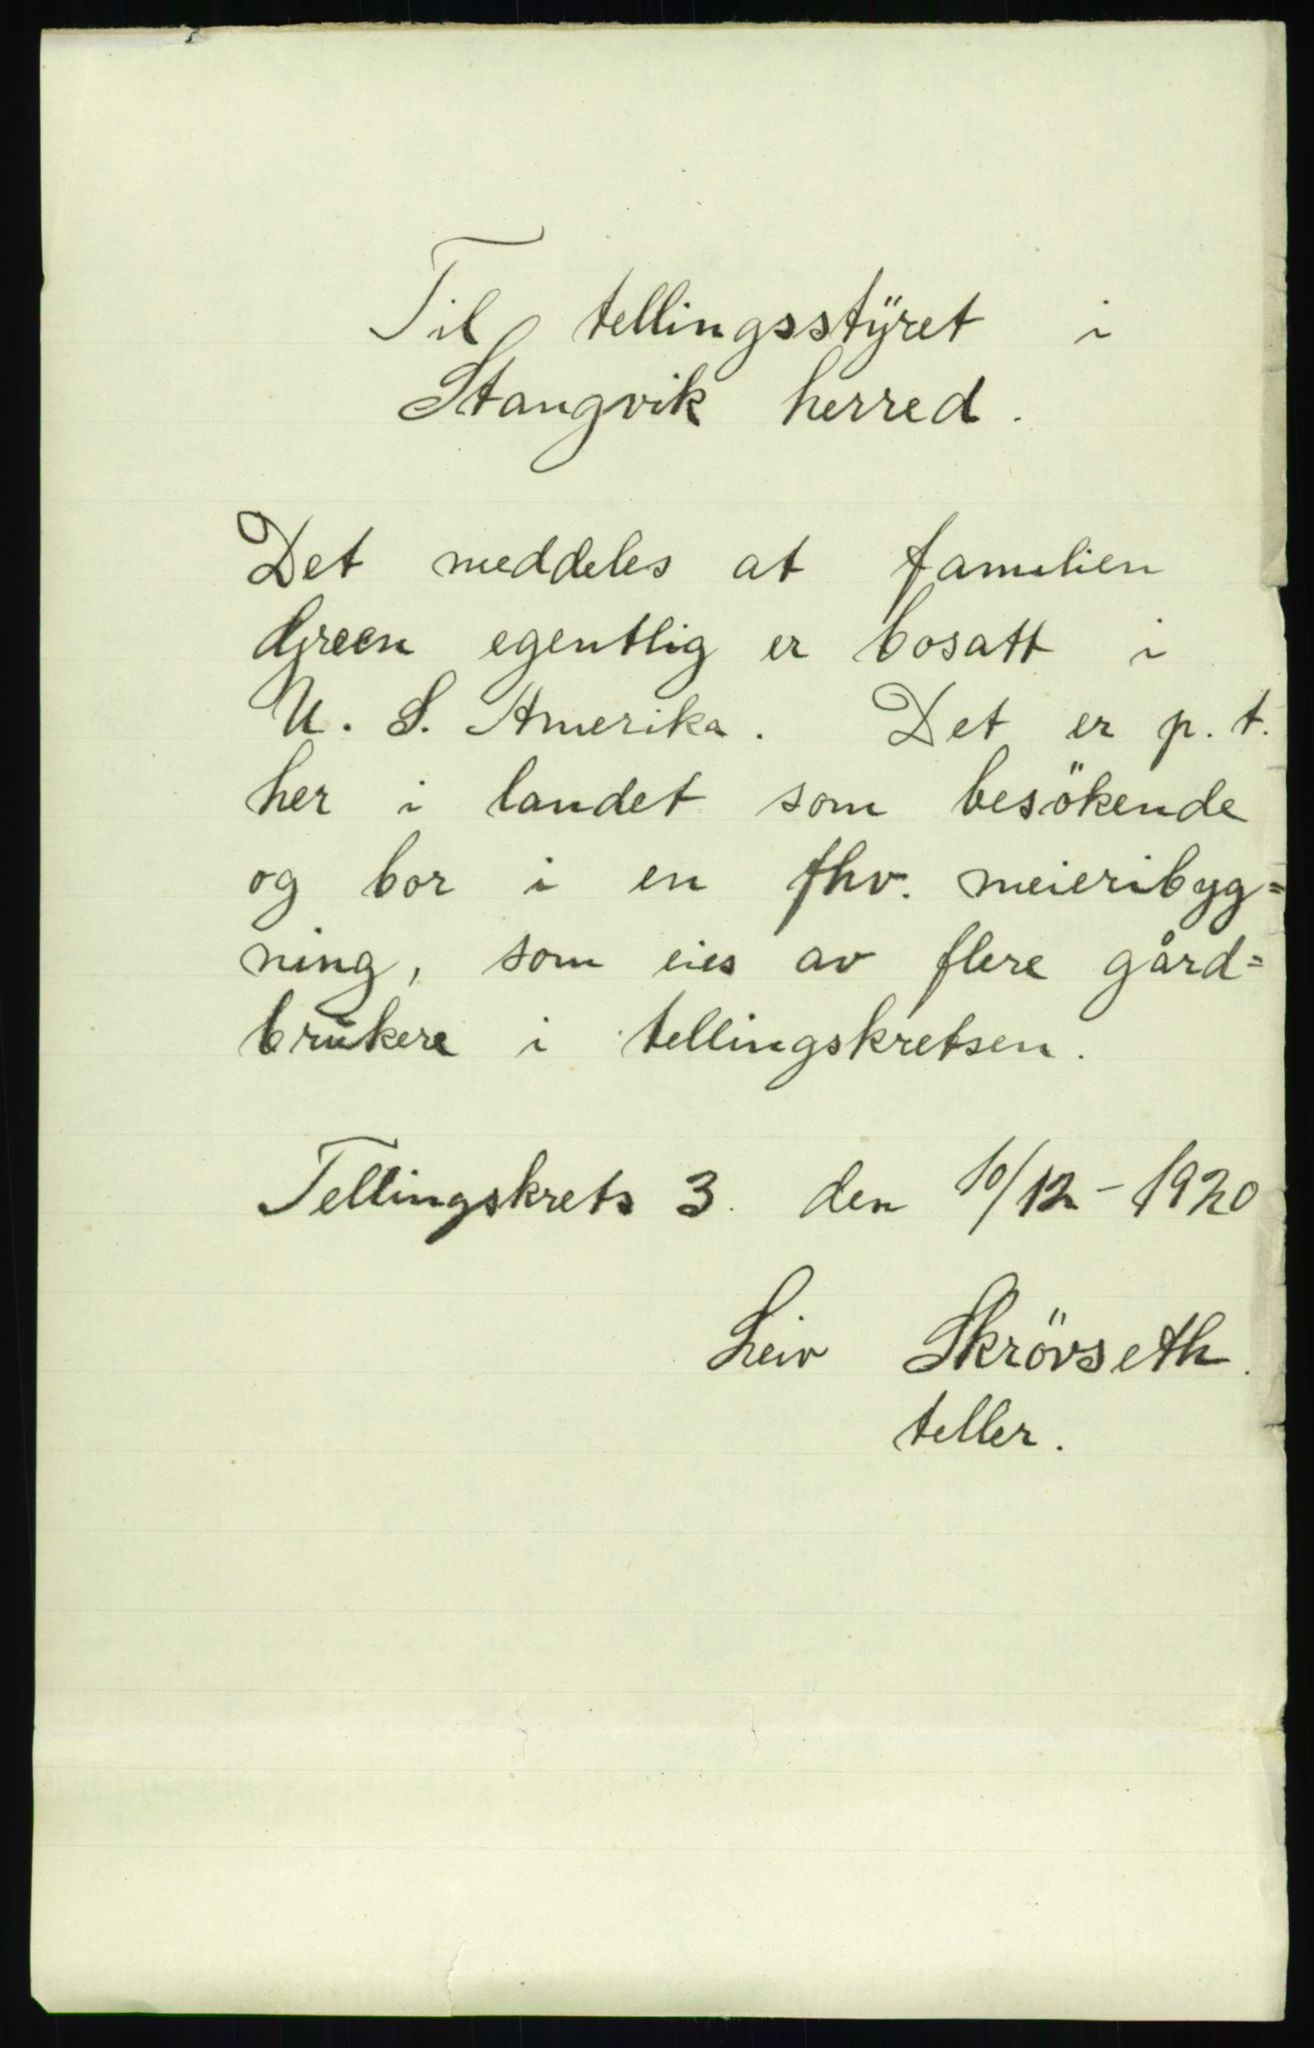 Til tellingsstÿret i
Stangvik herred.
Det meddeles at familien
Green egentlig er bosatt i
U. S. Amerika. Det er p. t.
her i landet som besökende
og bor i en fhv. meieribyg=
ning, som eies av flere gård=
brukere i tellingskretsen.
Tellingskrets 3. den 10/12 - 1920
Leiv Skrövseth.
teller.